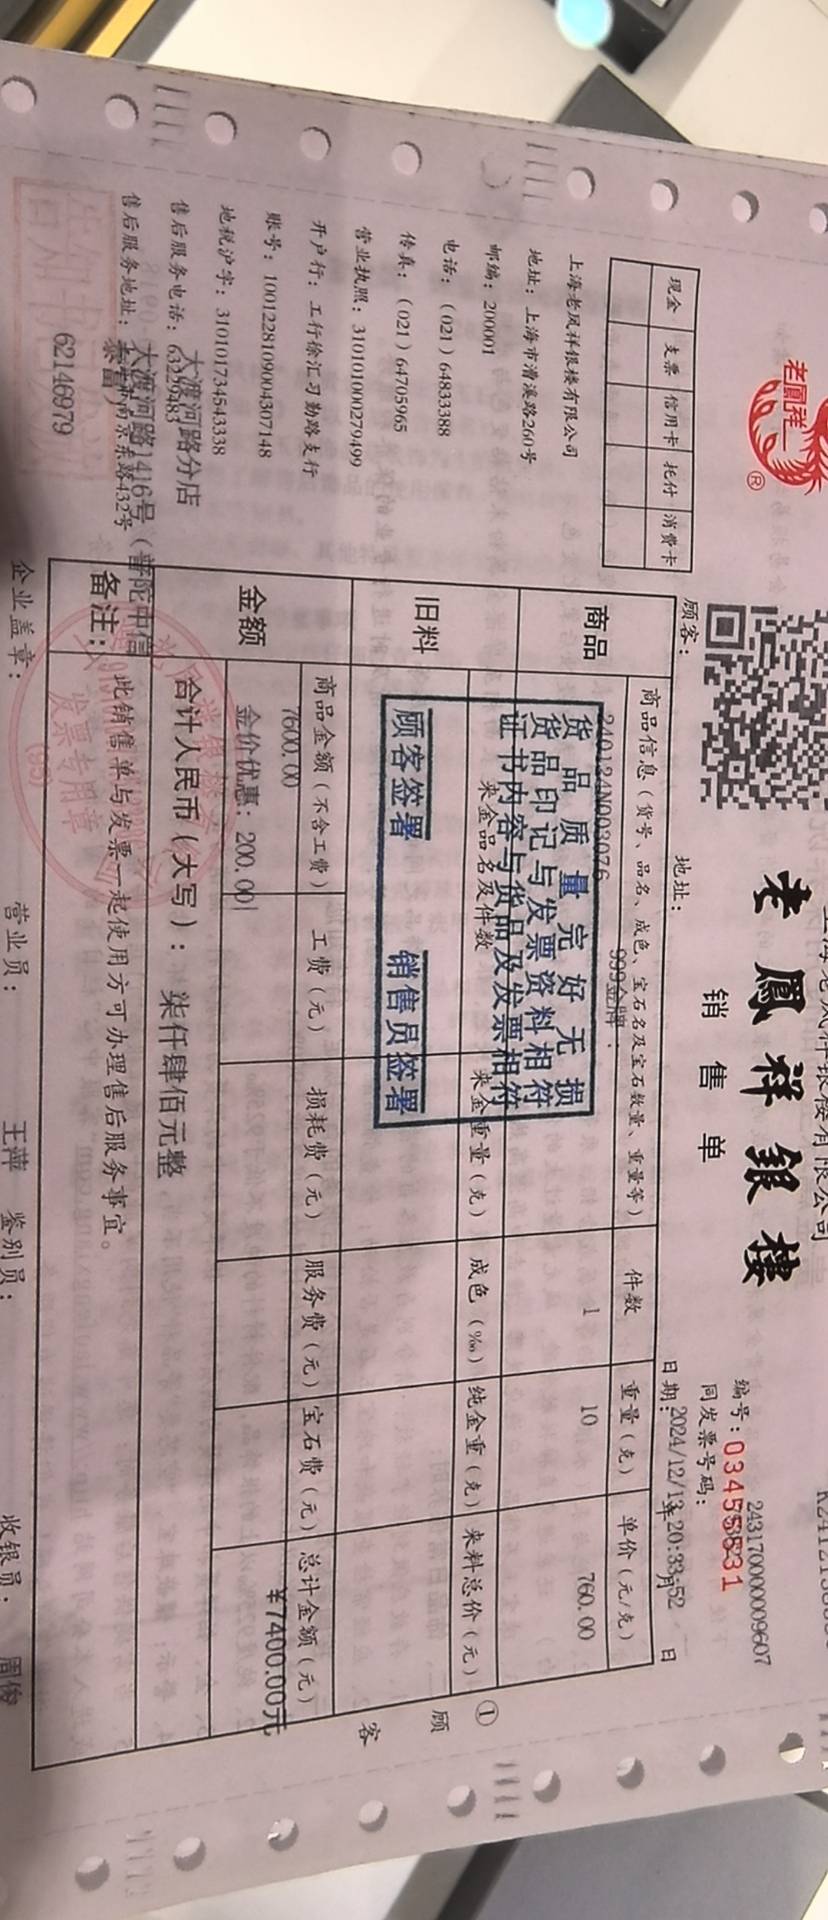 老鳳祥
®
老鳳祥銀樓
销售单
编号：03455831
243170000009607
同发票号码：
现金 支票 信用卡 托付 消费卡
顾客： 地址： 日期：2024/12/13 20:33:52 年 月 日
上海老凤祥银楼有限公司
地址：上海市漕溪路260号
邮编：200001
电话：（021）64833388
传真：（021）64705965
营业执照：310101000279499
开户行：工行徐汇习勤路支行
账号：1001228109004307148
地税沪字：310101734543338
售后服务电话：63220483
大渡河路分店
售后服务地址：
大渡河路1416号（普陀中信泰富）
62146979
商品
商品信息（货号、品名、成色、宝石名及宝石数量、重量等） 件数 重量（克） 单价（元/克）
240124N003076 999金牌 1 10 760.00
旧料
来金品名及件数 来金重量（克） 成色（‰） 纯金重（克） 来料总价（元）
货品质量完好无损
货品印记与发票资料相符
证书内容与货品及发票相符
顾客签署 销售员签署
金额
商品金额（不含工费） 工费（元） 损耗费（元） 服务费（元） 宝石费（元） 总计金额（元）
7600.00 ¥7400.00元
金价优惠：200.00
合计人民币（大写）：柒仟肆佰元整
备注：此销售单与发票一起使用方可办理售后服务事宜。
发票专用章
①
顾
客
企业盖章： 营业员： 王萍 鉴别员： 收银员： 周俊